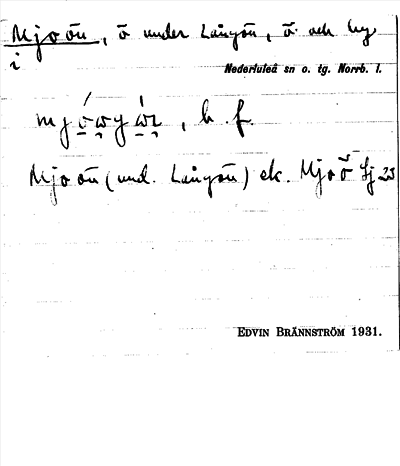 Mjoön, ö under Långön, ö och by
i
Nederluleå sn o. tg. Norrb. l.
b. f.
Mjoön (und. Långön) ek. Mjoö Lj 23
EDVIN BRÄNNSTRÖM 1931.